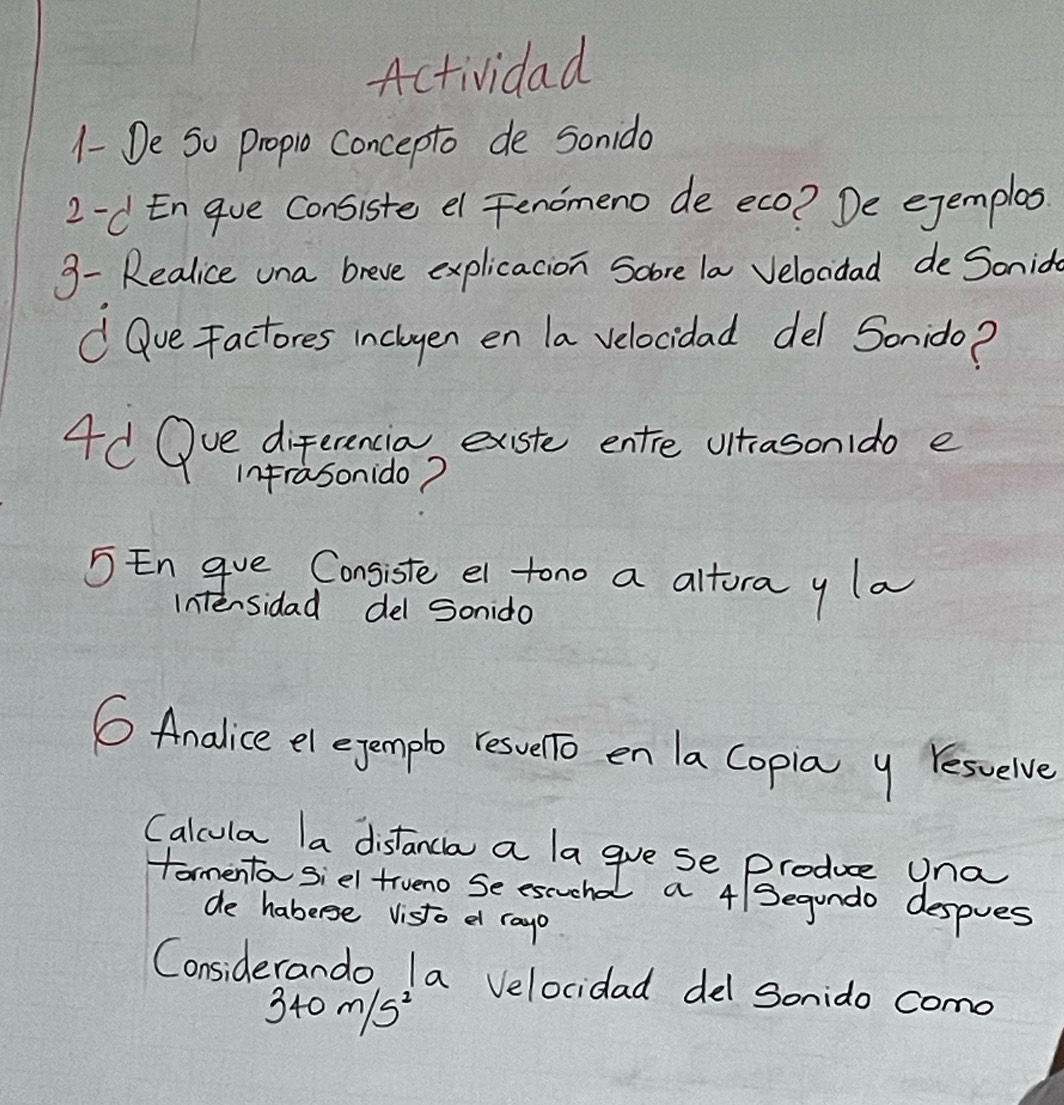 Actividad
1- De su propio concepto de sonido
2-¿ En que consiste el fenómeno de eco? De ejemplos.
3- Realice una breve explicación sobre la velocidad de sonido
¿ Que factores incluyen en la velocidad del sonido?
4¿ Que diferencia existe entre ultrasonido e
infrasonido?
5 En que consiste el tono a altura y la
intensidad del sonido
6 Analice el ejemplo resuelto en la copia y resuelve
Calcula la distancia a la que se produce una
tormenta si el trueno se escucha a 4 segundo despues
de haberse visto el rayo
Considerando la velocidad del sonido como
340 m/s²